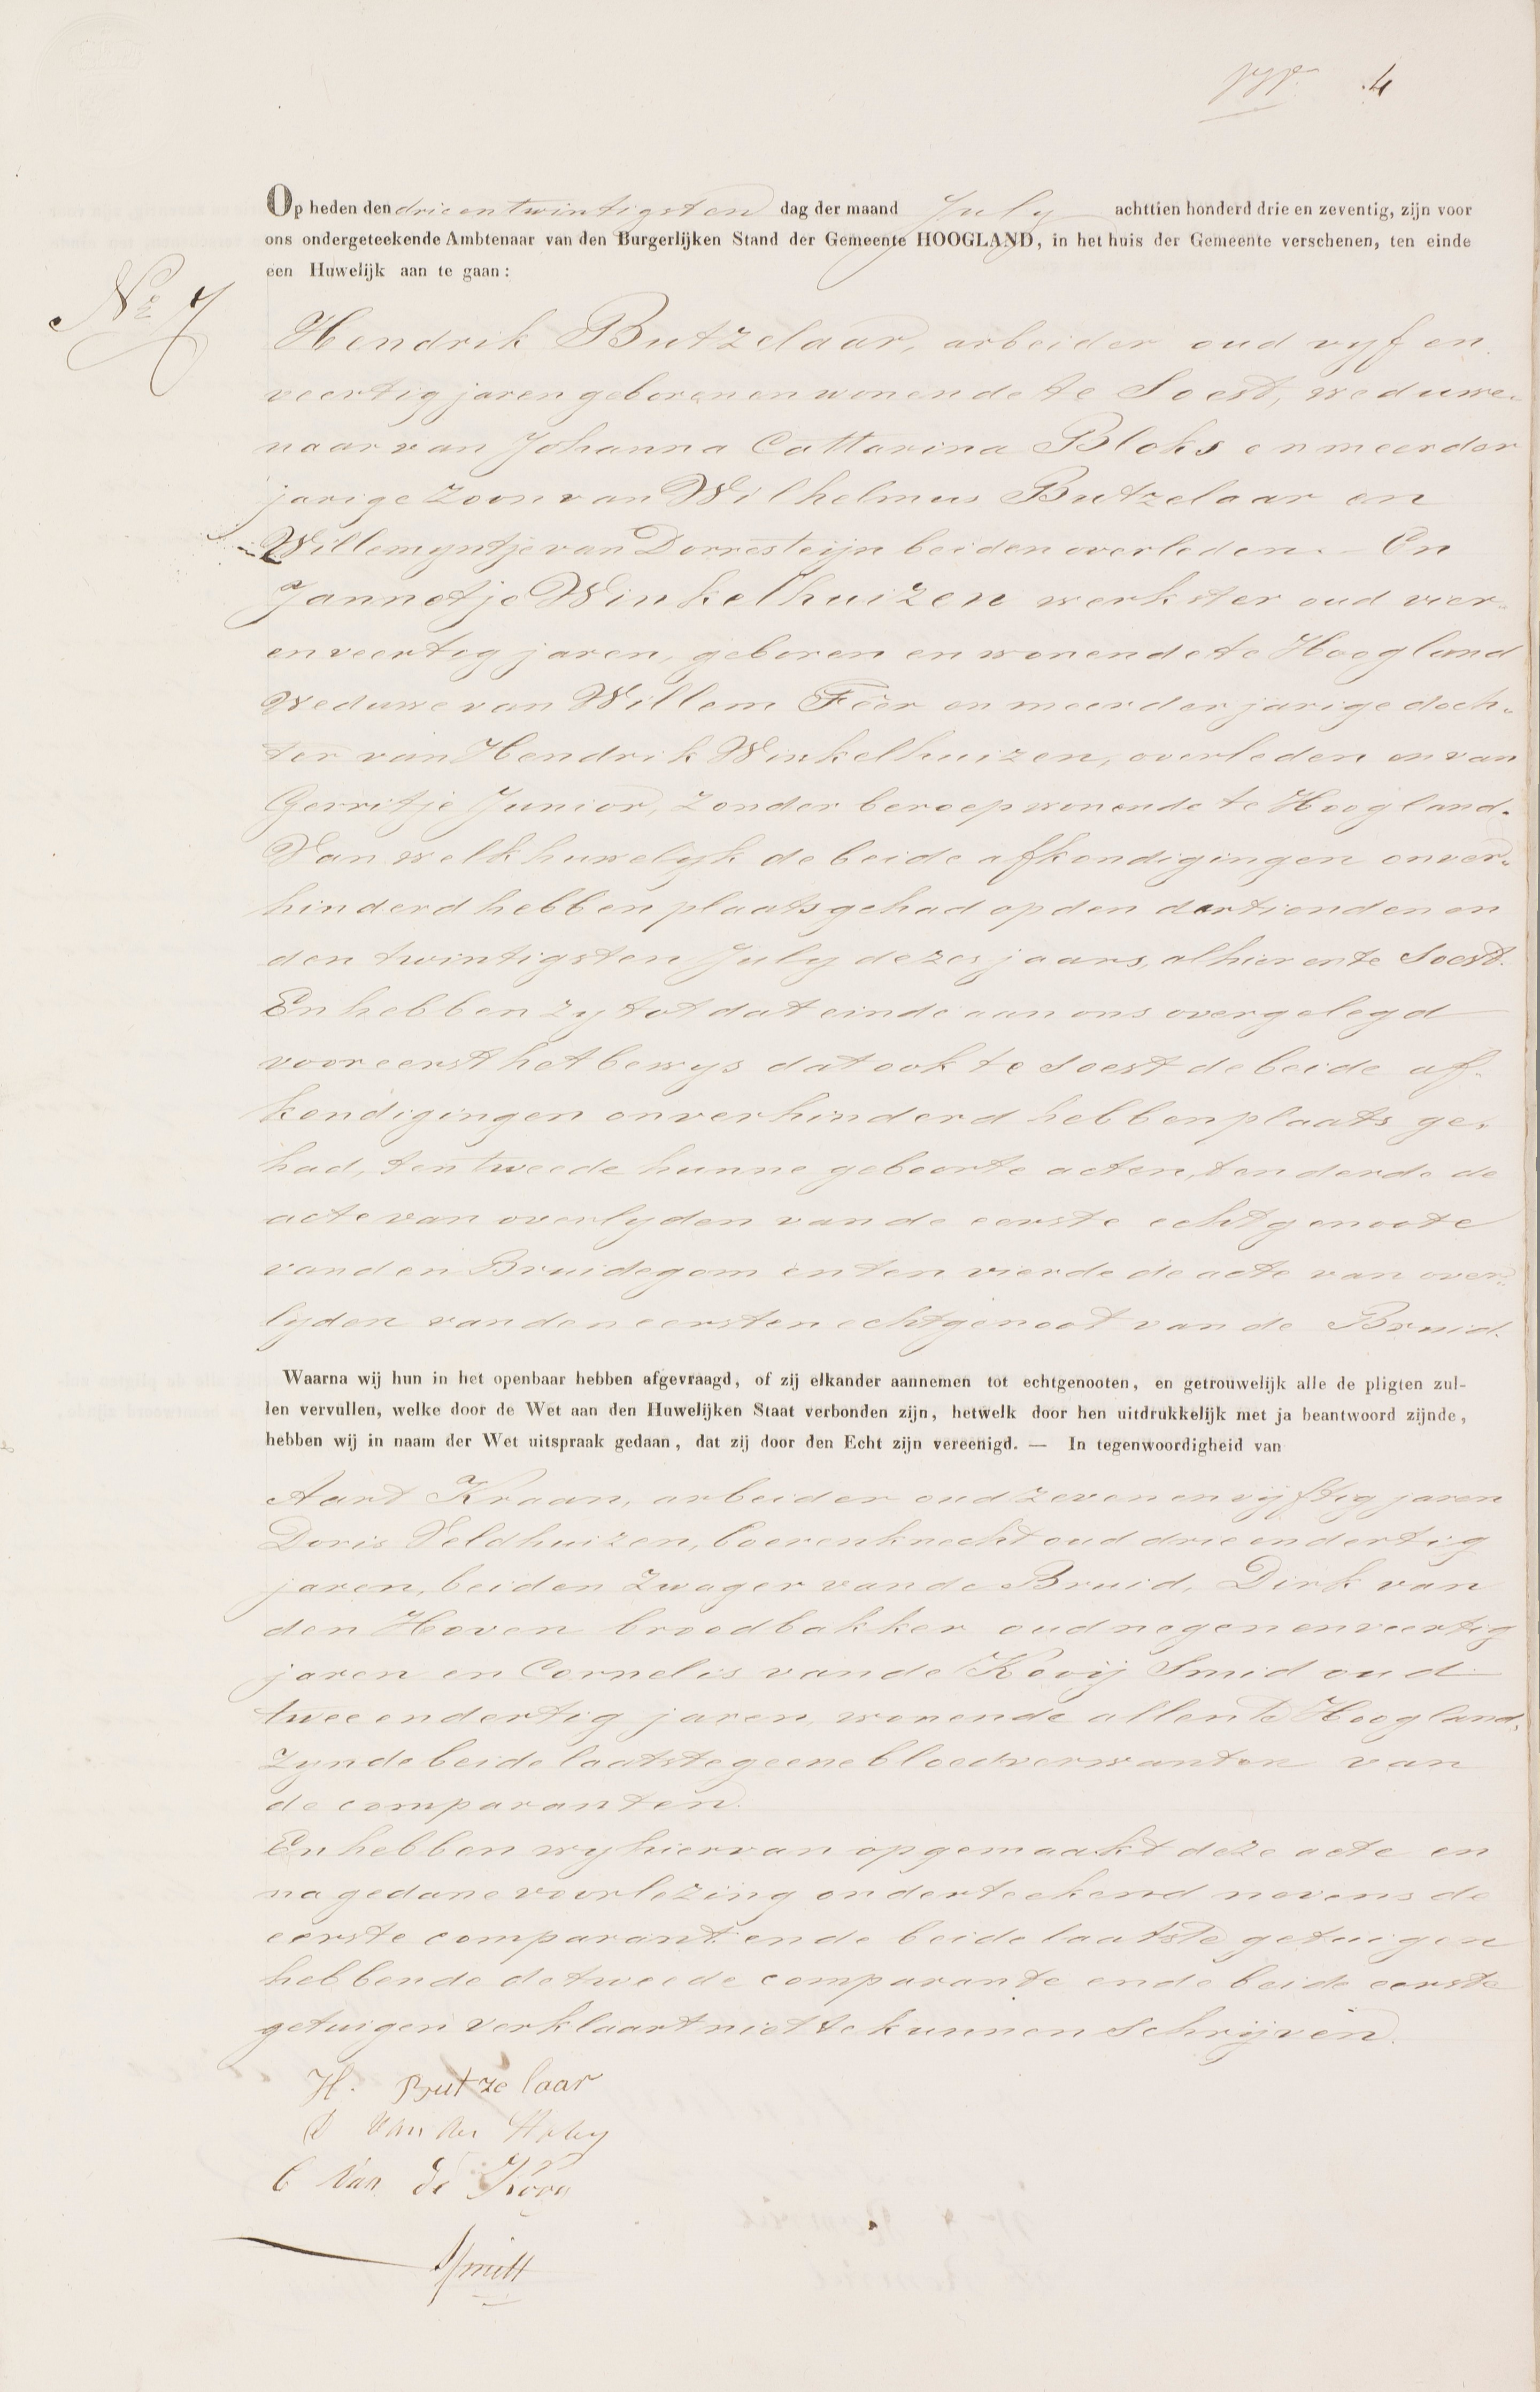 4
Op heden den drieentwintigsten dag der maand July achttien honderd drie en zeventig, zijn voor
ons ondergeteekende Ambtenaar van den Burgerlijken Stand der Gemeente HOOGLAND, in het huis der Gemeente verschenen, ten einde
een Huwelijk aan te gaan:
No 7
Hendrik Butzelaar, arbeider oud vyf en
veertig jaren geboren en wonende te Soest, weduwe-
naar van Johanna Cattarina Bloks en meerder
jarige zoon van Wilhelmus Butzelaar en
Willemyntje van Dorresteijn beiden overleden. - En
Jannetje Winkelhuizen werkster oud vier-
en veertig jaren, geboren en wonende te Hoogland
Weduwe van Willem Föer en meerderjarige doch-
ter van Hendrik Winkelhuizen, overleden en van
Gerritje Junior, zonder beroep wonende te Hoogland.
Van welk huwelijk de beide afkondigingen onver-
hinderd hebben plaats gehad op den dertienden en
den twintigsten July dezes jaars, alhier en te Soest.
En hebben zy tot dat einde aan ons overgelegd
vooreerst het bewys dat ook te Soest de beide af-
kondigingen onverhinderd hebben plaats ge-
had, ten tweede hunne geboorte acten, ten derde de
acte van overlyden van de eerste echtgenoote
van den Bruidegom en ten vierde de acte van over-
lyden van den eersten echtgenoot van de Bruid.
Waarna wij hun in het openbaar hebben afgevraagd, of zij elkander aannemen tot echtgenooten, en getrouwelijk alle de pligten zul-
len vervullen, welke door de Wet aan den Huwelijken Staat verbonden zijn, hetwelk door hen uitdrukkelijk met ja beantwoord zijnde,
hebben wij in naam der Wet uitspraak gedaan, dat zij door den Echt zijn vereenigd. — In tegenwoordigheid van
Aart Kraan, arbeider oud zeven en vijftig jaren
Doris Veldhuizen, boerenknecht oud drie en dertig
jaren, beiden Zwager van de Bruid, Dirk van
den Hoven broodbakker oud negen en veertig
jaren en Cornelis van de Kooij Smid oud
twee en dertig jaren, wonende allen te Hoogland,
zynde beide laatste geene bloedverwanten van
de comparanten.
En hebben wy hiervan opgemaakt deze acte en
na gedane voorlezing onderteekend nevens de
eerste comparant en de beide laatste getuigen
hebbende de tweede comparante en de beide eerste
getuigen verklaart niet te kunnen schrijven.
H. Butzelaar
D van den
C van de Kooy
Smitt